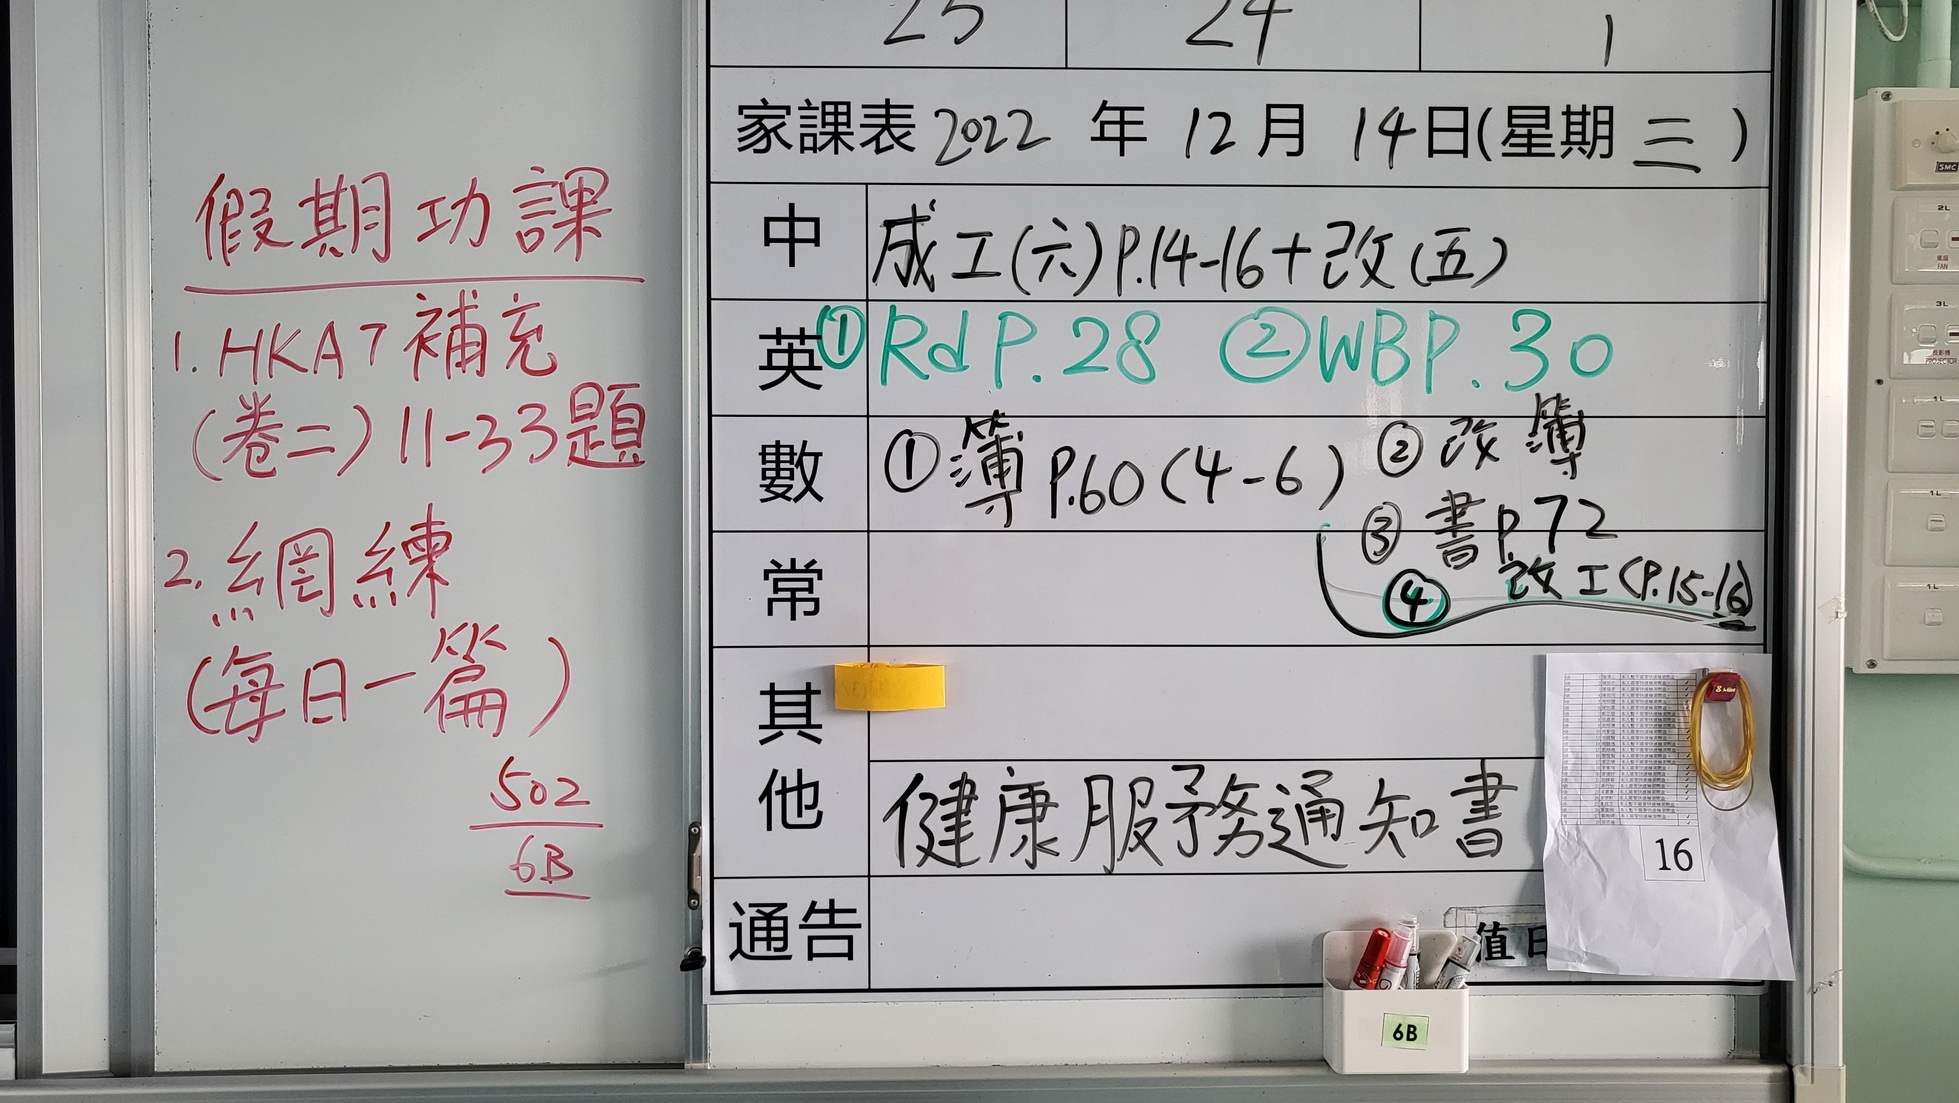 假期功課
1. HKAT 補充
(卷二) 11-33題
2. 網練
(每日一篇)
502
6B
25 24 1
家課表 2022 年 12 月 14 日(星期 三 )
中 成工(六) P.14-16 + 改(五)
英 ① Rd P. 28 ② WB P. 30
數 ① 簿 P.60 (4-6) ② 改簿
③ 書 p.72
常
④ 改工 (P.15-16)
其他
健康服務通知書
通告
值日
16
6B
SMC
2L
FAN
3L
PROJECTOR
1L
1L
1L